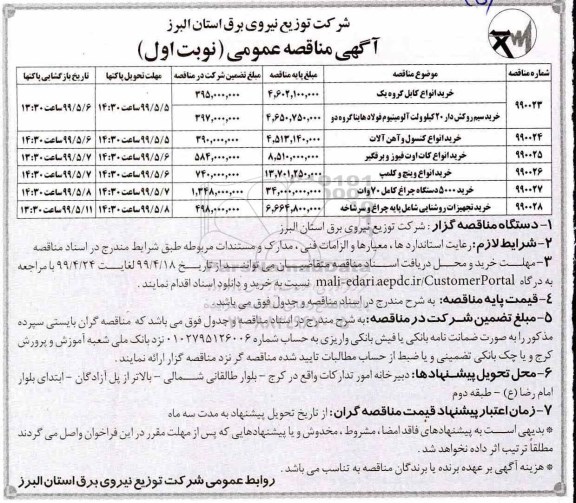 شرکت توزیع نیروی برق استان البرز
آگهی مناقصه عمومی (نوبت اول)
شماره مناقصه موضوع مناقصه مبلغ پایه مناقصه مبلغ تضمین شرکت در مناقصه مهلت تحویل پاکتها تاریخ بازگشایی پاکتها
۹۹۰۰۲۳ خرید انواع کابل گروه یک ۴,۶۰۲,۱۰۰,۰۰۰ ۳۹۵,۰۰۰,۰۰۰ ۹۹/۵/۵ ساعت ۱۴:۳۰ ۹۹/۵/۶ ساعت ۱۳:۳۰
خرید سیم روکش دار ۲۰ کیلو ولت آلومینیوم فولاد هاینا گروه دو ۴,۶۵۰,۷۵۰,۰۰۰ ۳۹۷,۰۰۰,۰۰۰
۹۹۰۰۲۴ خرید انواع کنسول و آهن آلات ۴,۵۱۳,۱۴۰,۰۰۰ ۳۹۰,۰۰۰,۰۰۰ ۹۹/۵/۵ ساعت ۱۴:۳۰ ۹۹/۵/۶ ساعت ۱۴:۳۰
۹۹۰۰۲۵ خرید انواع کات اوت فیوز و برقگیر ۸,۵۱۰,۰۰۰,۰۰۰ ۵۸۴,۰۰۰,۰۰۰ ۹۹/۵/۶ ساعت ۱۴:۳۰ ۹۹/۵/۷ ساعت ۱۳:۳۰
۹۹۰۰۲۶ خرید انواع وینچ و کلمپ ۱۳,۷۰۱,۲۵۰,۰۰۰ ۷۴۰,۰۰۰,۰۰۰ ۹۹/۵/۶ ساعت ۱۴:۳۰ ۹۹/۵/۷ ساعت ۱۴:۳۰
۹۹۰۰۲۷ خرید ۵۰۰۰ دستگاه چراغ کامل ۷۰ وات ۳۴,۰۰۰,۰۰۰,۰۰۰ ۱,۳۴۸,۰۰۰,۰۰۰ ۹۹/۵/۷ ساعت ۱۴:۳۰ ۹۹/۵/۸ ساعت ۱۴:۳۰
۹۹۰۰۲۸ خرید تجهیزات روشنایی شامل پایه چراغ و سرشاخه ۶,۶۶۴,۸۰۰,۰۰۰ ۴۹۸,۰۰۰,۰۰۰ ۹۹/۵/۸ ساعت ۱۴:۳۰ ۹۹/۵/۱۱ ساعت ۱۳:۳۰
۱- دستگاه مناقصه گزار : شرکت توزیع نیروی برق استان البرز
۲- شرایط لازم : رعایت استاندارد ها ، معیارها و الزامات فنی ، مدارک و مستندات مربوطه طبق شرایط مندرج در اسناد مناقصه
۳- مهلت خرید و محل دریافت اسناد مناقصه متقاضیان می توانند از تاریخ ۹۹/۴/۱۸ لغایت ۹۹/۴/۲۴ با مراجعه
به درگاه mali-edari.aepdc.ir/CustomerPortal نسبت به خرید و دانلود اسناد اقدام نمایند .
۴- قیمت پایه مناقصه: به شرح مندرج در اسناد مناقصه و جدول فوق می باشد.
۵- مبلغ تضمین شرکت در مناقصه: به شرح مندرج در اسناد مناقصه و جدول فوق می باشد که مناقصه گران بایستی سپرده
مذکور را به صورت ضمانت نامه بانکی یا فیش بانکی واریزی به حساب شماره ۰۱۰۲۷۹۵۱۲۶۰۰۶ نزد بانک ملی شعبه آموزش و پرورش
کرج و یا چک بانکی تضمینی و یا ضبط از حساب مطالبات تایید شده مناقصه گر نزد مناقصه گزار ارائه نمایند .
۶- محل تحویل پیشنهادها: دبیرخانه امور تدارکات واقع در کرج - بلوار طالقانی شمالی - بالاتر از پل آزادگان - ابتدای بلوار
امام رضا (ع) - طبقه دوم
۷- زمان اعتبار پیشنهاد قیمت مناقصه گران: از تاریخ تحویل پیشنهاد به مدت سه ماه
* بدیهی است به پیشنهادهای فاقد امضا ، مشروط ، مخدوش و یا پیشنهادهایی که پس از مهلت مقرر در این فراخوان واصل می گردند
مطلقاً ترتیب اثر داده نخواهد شد .
* هزینه آگهی بر عهده برنده یا برندگان مناقصه به تناسب می باشد .
روابط عمومی شرکت توزیع نیروی برق استان البرز